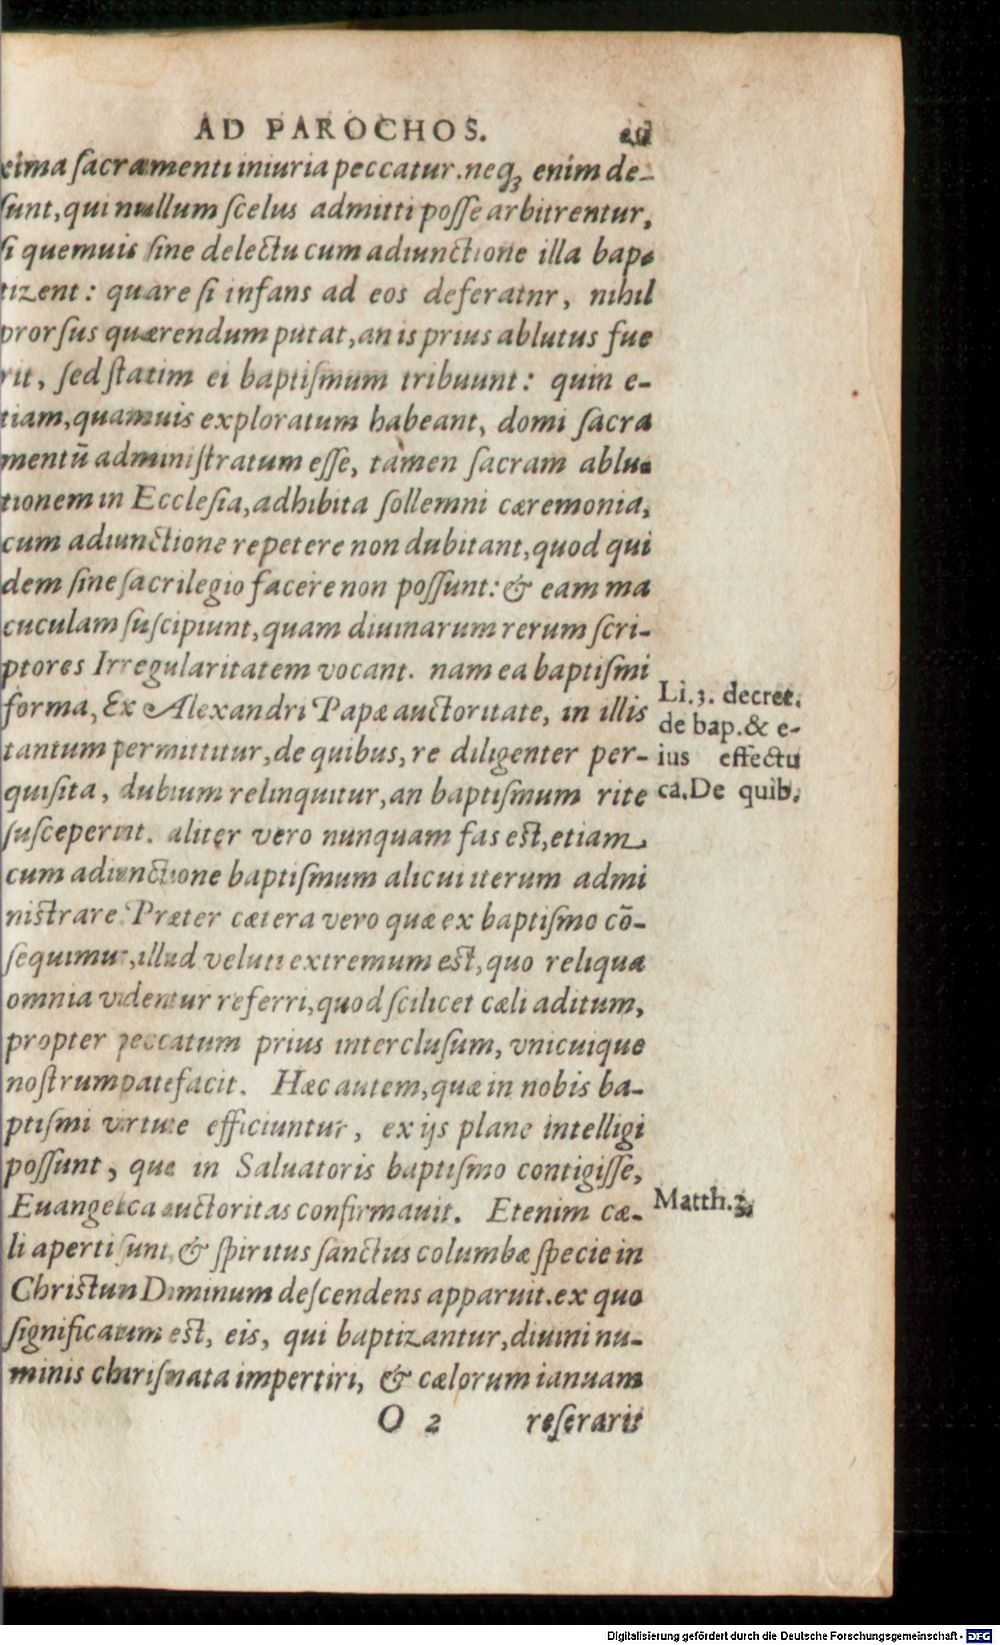 AD PAROCHOS.
xima sacramenti iniuria peccatur. neq; enim de-
sunt, qui nullum scelus admitti posse arbitrentur,
si quemuis sine delectu cum adiunctione illa bap-
tizent: quare si infans ad eos deferatnr, nihil
prorsus quærendum putat, an is prius ablutus fue
rit, sed statim ei baptismum tribuunt: quin e-
tiam, quamuis exploratum habeant, domi sacra
mentū administratum esse, tamen sacram ablu-
tionem in Ecclesia, adhibita sollemni cæremonia,
cum adiunctione repetere non dubitant, quod qui
dem sine sacrilegio facere non possunt: & eam ma
culam suscipiunt, quam diuinarum rerum scri-
ptores Irregularitatem vocant. nam ea baptismi
forma, Ex Alexandri Papæ auctoritate, in illis
tantum permittitur, de quibus, re diligenter per-
quisita, dubium relinquitur, an baptismum rite
susceperint. aliter vero nunquam fas est, etiam
cum adiunctione baptismum alicui iterum admi
nistrare. Præter cætera vero quæ ex baptismo cō-
sequimur, illud veluti extremum est, quo reliqua
omnia videntur referri, quod scilicet cæli aditum,
propter peccatum prius interclusum, vnicuique
nostrum patefacit. Hæc autem, quæ in nobis ba-
ptismi virtute efficiuntur, ex ijs plane intelligi
possunt, quæ in Saluatoris baptismo contigisse,
Euangelica auctoritas confirmauit. Etenim cæ-
li aperti sunt, & spiritus sanctus columbæ specie in
Christum Dominum descendens apparuit. ex quo
significatum est, eis, qui baptizantur, diuini nu-
minis charismata impertiri, & cælorum ianuam
O 2 reserarit
Li. 3. decret.
de bap. & e-
ius effectu
ca. De quib.
Matth. 3.
Digitalisierung gefördert durch die Deutsche Forschungsgemeinschaft - DFG